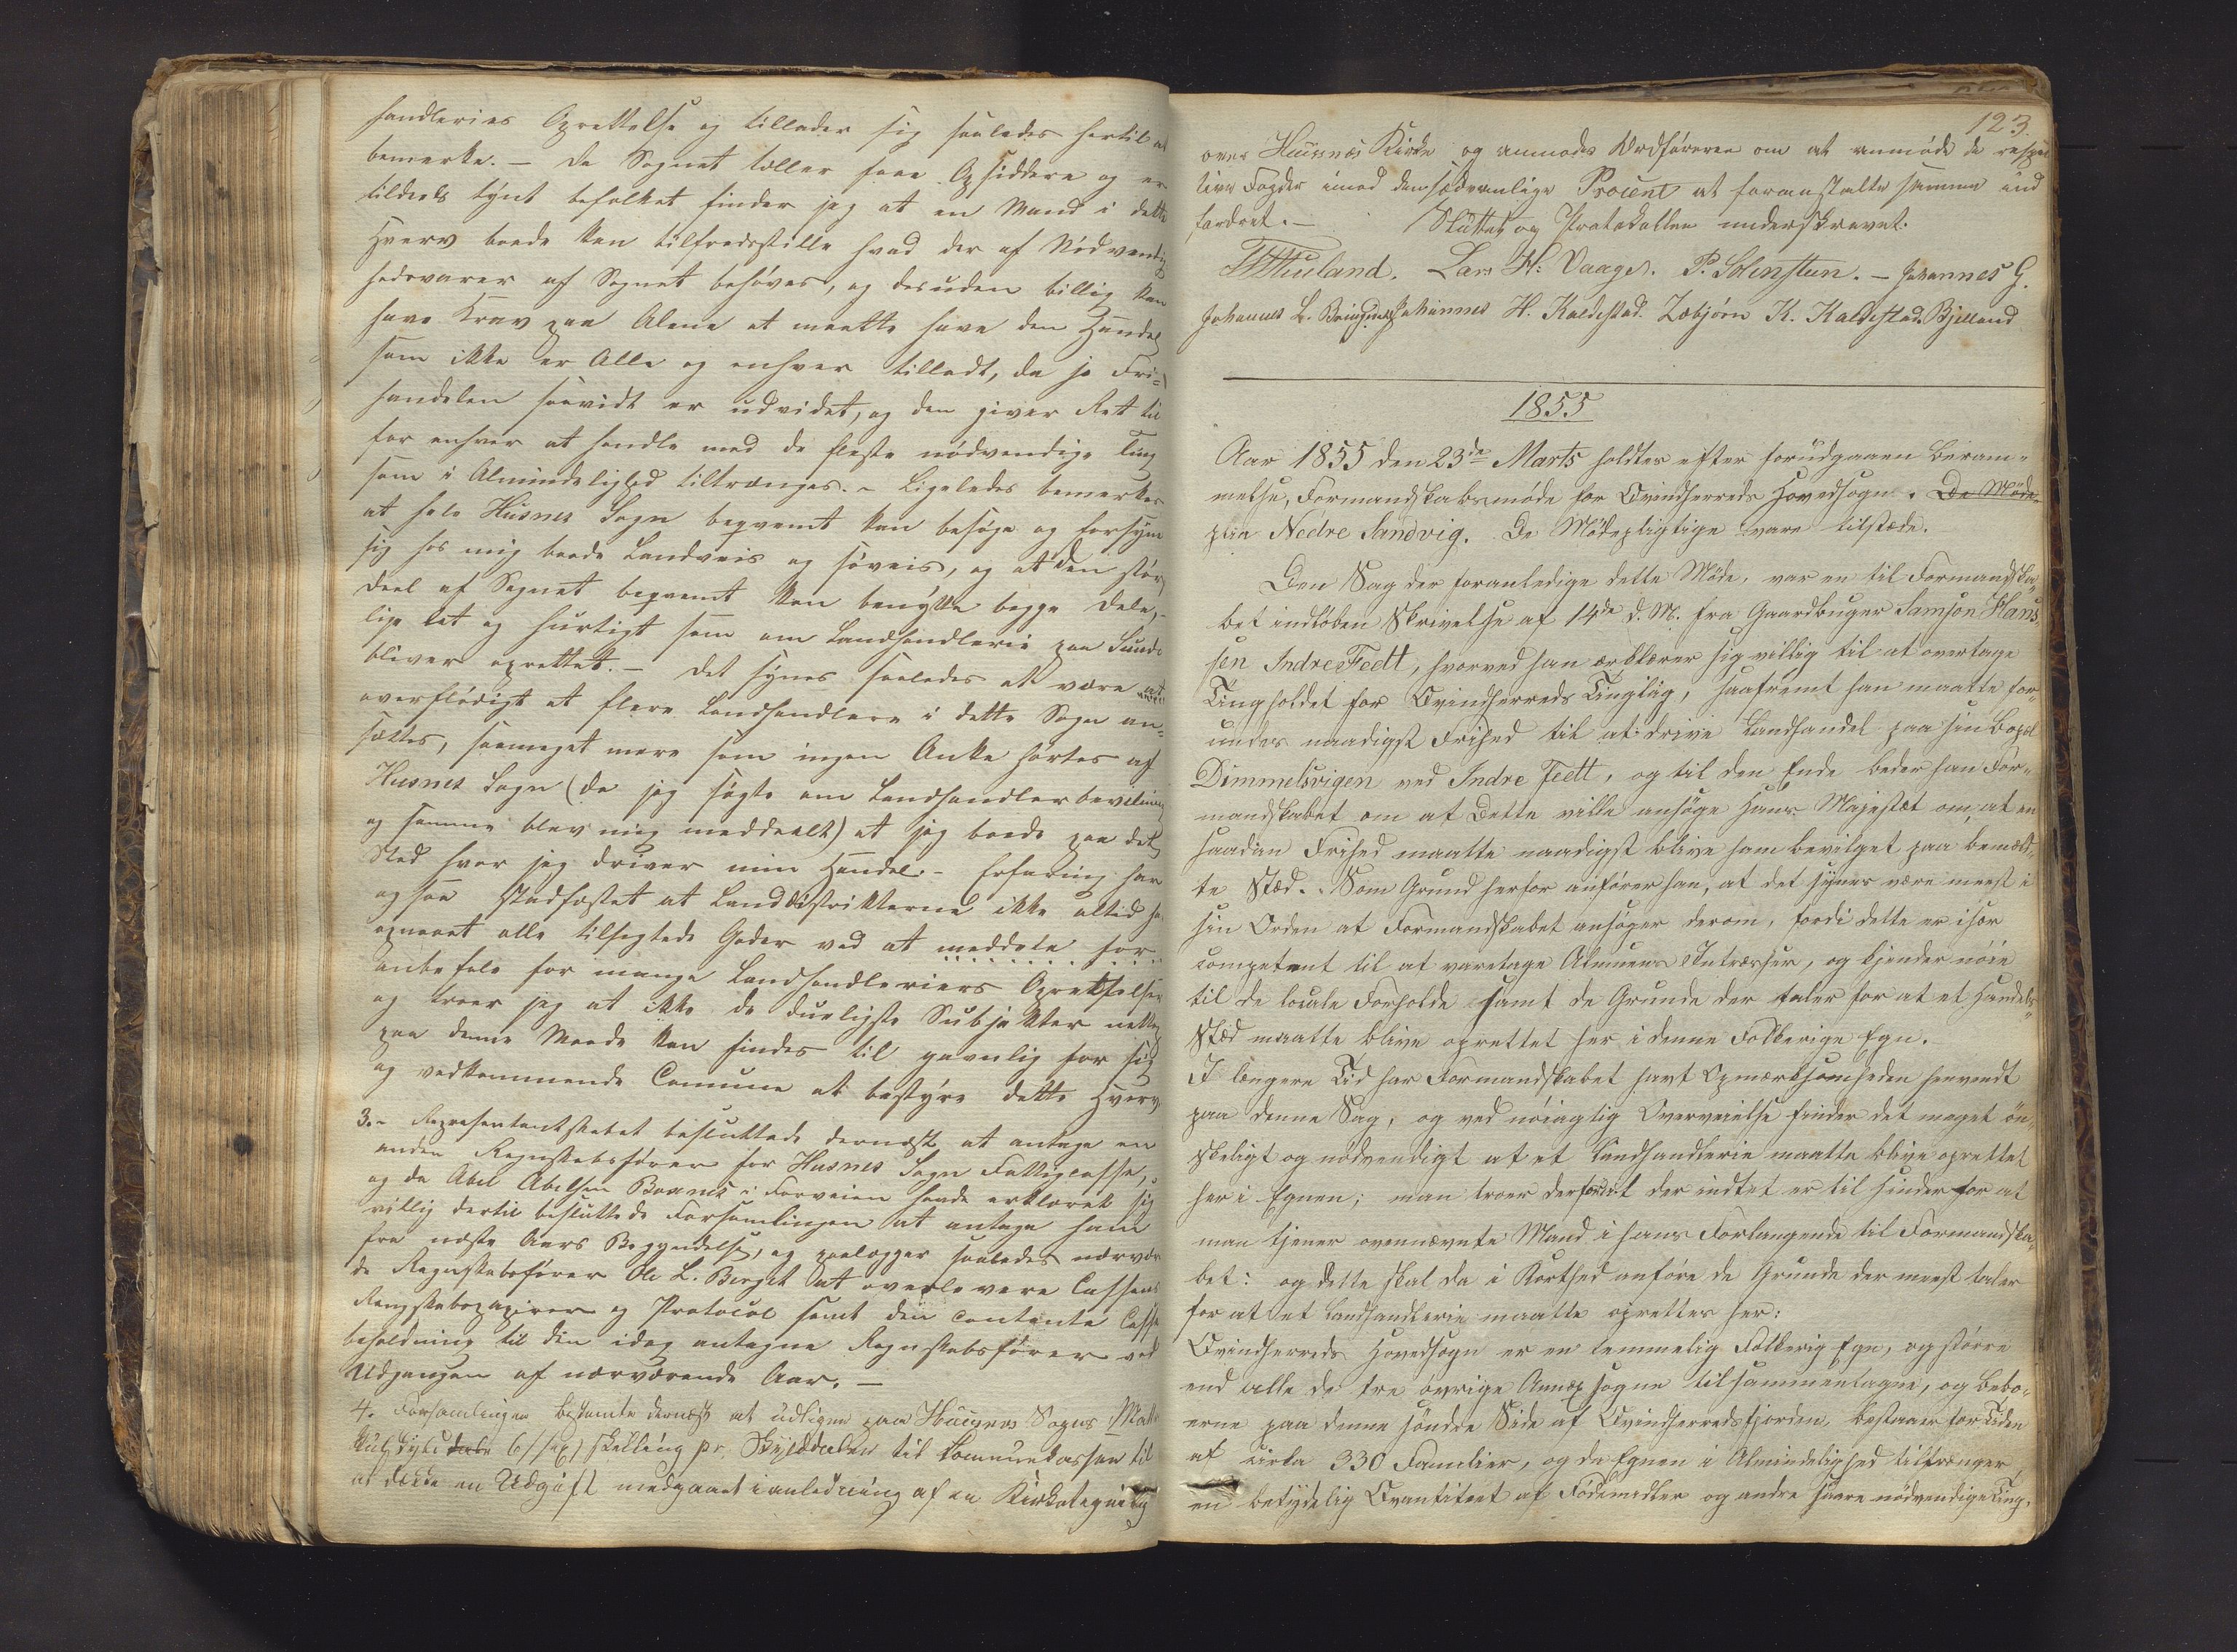 handleries Oprettelse og tillader sig saaledes hertil at
bemærke. – Da Sognet tæller faae Opsiddere og er
tildeels tynt befolket finder jeg at en Mand i dette
Hverv baade kan tilfredsstille hvad der af Nødvendig
hedsvarer af Sognet behøves, og desuden billig kan
have Krav paa Alene at maatte have den Handel
som ikke er Alle og enhver tilladt, da jo Fri-
handelen saavidt er udvidet, og den giver Ret til
for enhver at handle med de fleste nødvendige Ting
som i Almindelighed tiltrænges. – Ligeledes bemærkes
at hele Husnes Sogn beqvemt kan besøge og forsyne
sig hos mig baade Landveis og søveis, og at den større
Deel af Sognet beqvemt kan benytte begge Dele,
lige let og hurtigt som om Landhandlerie paa Sunde
bliver oprettet. – Det synes saaledes at være
overflødigt at flere Landhandlere i dette Sogn an-
sættes, saameget mere som ingen Anke hørtes af
Husnes Sogn (da jeg søgte om Landhandlerbevilning
og samme blev mig meddeelt) at jeg boede paa det
Sted hvor jeg driver min Handel. – Erfaring har
ogsaa stadfæstet at Landdistrikterne ikke altid har
opnaaet alle tilsigtede Goder ved at meddele for
anbefale for mange Landhandleriers Oprettelser
og troer jeg at ikke de dueligste Subjekter netop
paa denne Maade kan findes til gavnlig for sig
og vedkommende Comune at bestyre dette Hverv
3.- Repræsentantskabet besluttede dernæst at antage en
anden Regnskabsfører for Husnes Sogn Fattigcasse,
og da Abel Abelsen Boxnes i Forveien havde erklæret sig
villig dertil besluttede Forsamlingen at antage ham
fra næste Aars Begyndelse, og paalægger saaledes nærværen
de Regnskabsfører Ole L. Berget at overlevere Cassens
Rengskabspapirer og Protocol samt den contante Casse
beholdning til den idag antagne Regnskabsfører ved
Udgangen af nærværende Aar. –
4. Forsamlingen bestemte dernæst at udligne paa Huusnæs Sogns Matri
kulskyld 6 /:sex:/ skilling pr. Skylddaler til Kommunekassen til
at dække en Udgift medgaaet i anledning af en Kirketegning
123.
over Huusnæs Kirke og anmodes Ordføreren om at anmode de respec
tive Fogder imod den sædvanlige Procent at foranstalte samme ind
fordret. – Sluttet og Protokollen underskrevet.
Lars H: Vaage. P. Solensteen. – Johannes G.
Johannes L. Bringenes Johannes H. Kaldestad. Torbjørn K. Kaldestad. Bjelland
1855
Aar 1855 den 23de Marts holdtes efter forudgaaen Beram-
melse, Formandskabsmøde for Qvindherreds Hovedsogn. De Møde-
paa Nedre Sandvig. De Mødepligtige vare tilstæde.
Den Sag der foranledige dette Møde, var en til Formandska-
bet indløben Skrivelse af 14de d. M. fra Gaardbruger Samson Hans-
sen Indre Fedt, hvorved han ærklærer sig villig til at overtage
Tingholdet for Qvindherreds Tinglag, saafremt han maatte for-
undes naadigst Frihed til at drive Landhandel paa sin Bopæl
Dimmelsvigen ved Indre Fedt, og til den Ende beder han For-
mandskabet om at Dette ville ansøge Hans Majestæt om, at en
saadan Frihed maatte naadigst blive ham bevilget paa bemeld-
te Stæd. Som Grund herfor anfører han, at det synes være meest i
sin Orden at Formandskabet ansøger derom, fordi dette er især
competent til at varetage Almuens Intræsser, og kjender nøie
til de locale Forholde samt de Grunde der taler for at et Handels-
Stæd maatte blive oprettet her i denne Folkerige Egn.
I længere Tid har Formandskabet havt Opmærksomheden henvendt
paa denne Sag, og ved nøiagtig Overveielse finder det meget øn-
skeligt og nødvendigt at et Landhandlerie maatte blive oprettet
her i Egnen; man troer derfor at der indtet er til Hinder for at
man tjener ovennævnte Mand i hans Forlangende til Formandska-
bet: og dette skal da i Korthed anføre de Grunde der meest taler
for at et Landhandlerie maatte oprettes her:
Qvindherreds Hovedsogn er en temmelig Folkerig Egn, og større
end alle de tre øvrige Annex sogne tilsammentagne, og Bebo-
erne paa denne søndre Side af Qvindherredsfjorden, bestaaer for Tiden
af cirka 330 Familier, og da Egnen i Almindelighed tiltrænger
en betydelig Qvantitet af Fødemidler og andre saare nødvendige Ting,